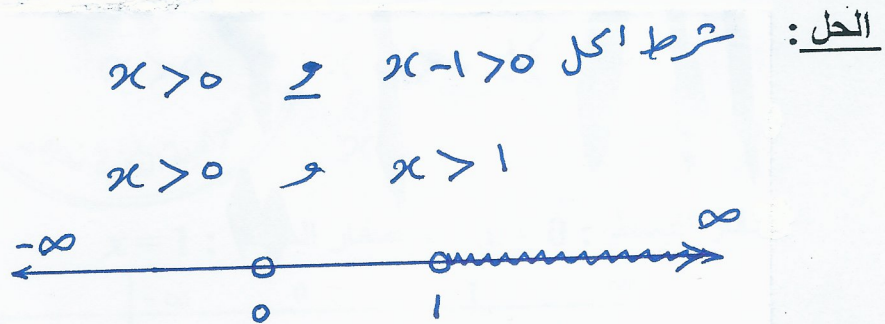 الحل :
شرط الحل x-1>0 و x>0
x>1 و x>0
-∞ ∞
0 1